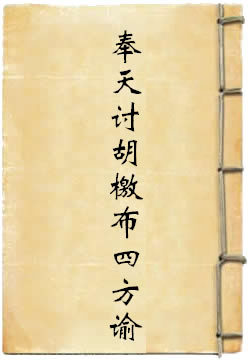 奉天讨胡檄布四方谕